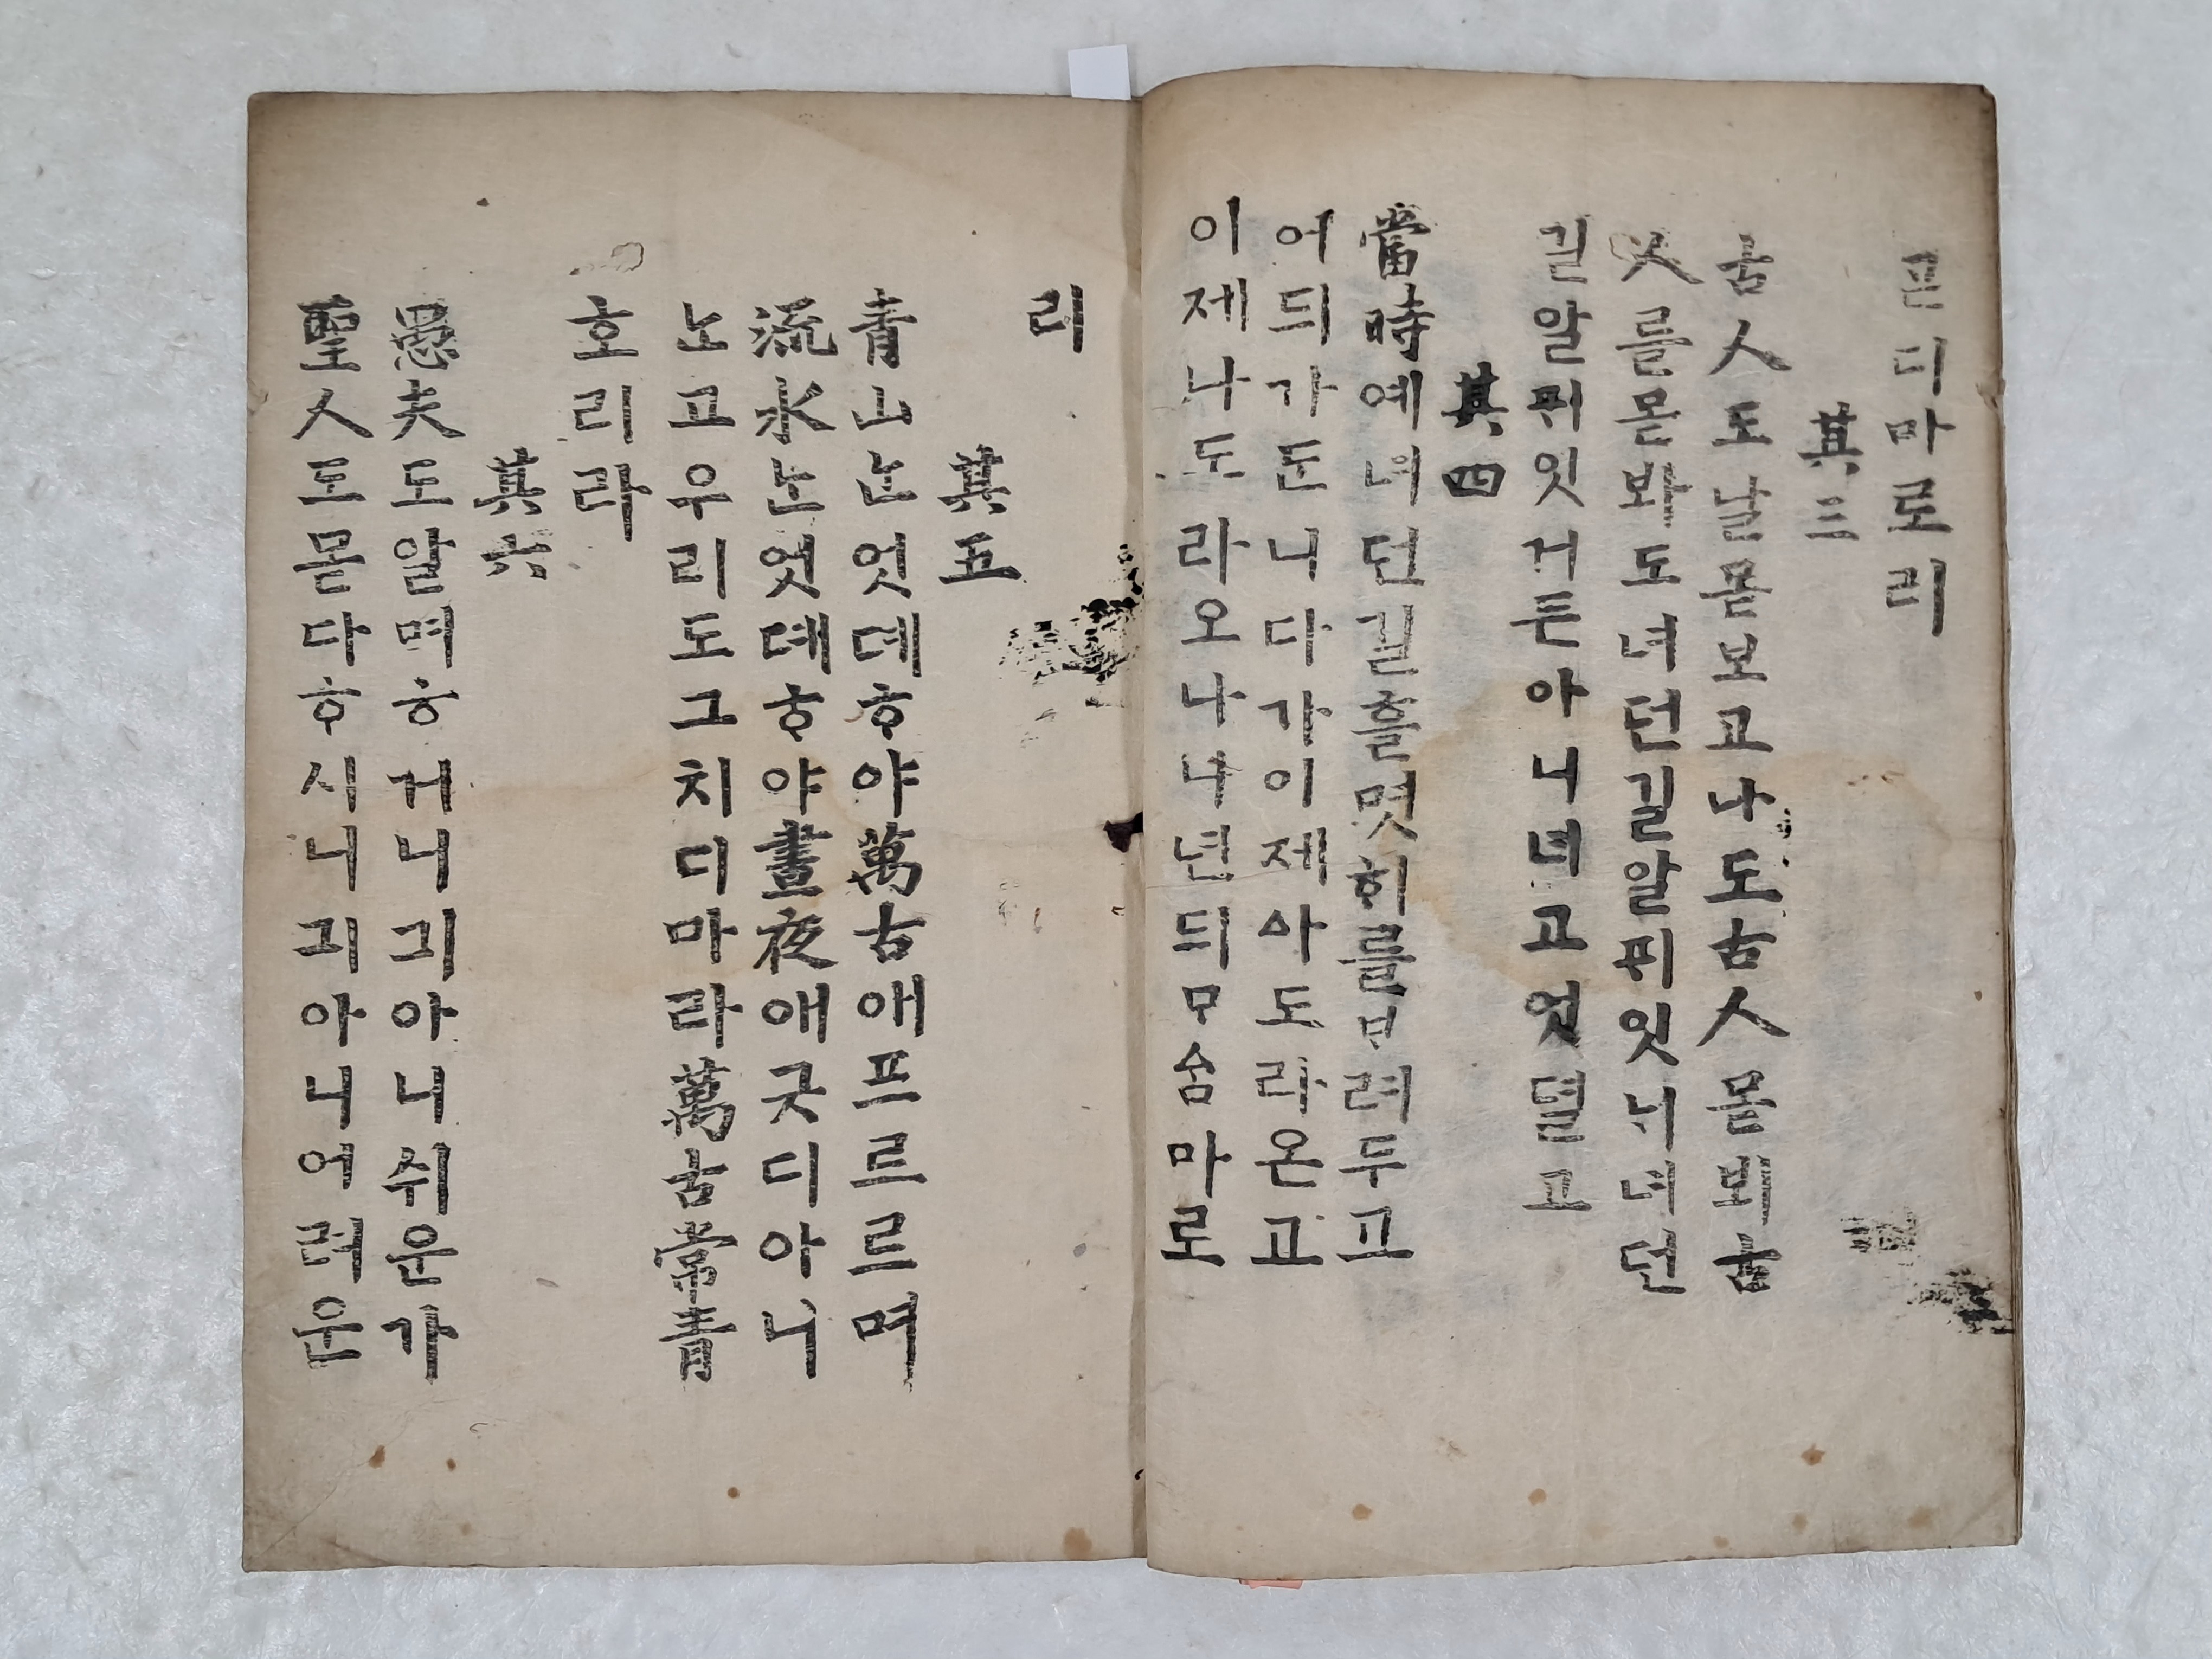 ᄀᆞᆮ디마로리
其三
古人도날몯보고나도古人몯뵈古
人를몯봐도녀던길알ᄑᆡ잇ᄂᆡ녀던
길알ᄑᆡ잇거든아니녀고엇뎔고
其四
當時예녀던길흘몃ᄒᆡ를ᄇᆞ려두고
어듸가ᄃᆞᆫ니다가이제아도라온고
이제나도라오나니년듸ᄆᆞᅀᆞᆷ마로
리
其五
青山ᄂᆞᆫ엇뎨ᄒᆞ야萬古애프르르며
流水ᄂᆞᆫ엇뎨ᄒᆞ야晝夜애긋디아니
ᄂᆞᆫ고우리도그치디마라萬古常青
호리라
其六
愚夫도알며ᄒᆞ거니긔아니쉬운가
聖人도몯다ᄒᆞ시니긔아니어려운